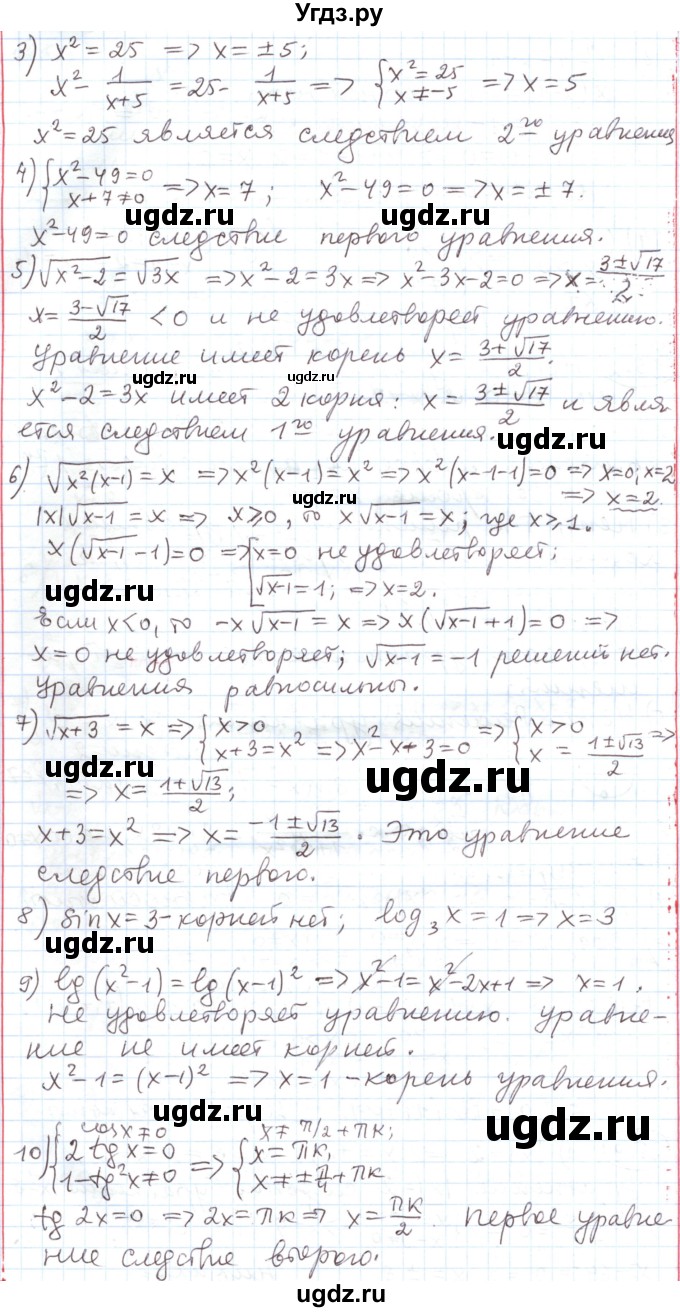 Угдз.ру
3) x² = 25 => x = ±5;
x² - 1/(x+5) = 25 - 1/(x+5) => {x² = 25 x ≠ -5 => x = 5
x² = 25 является следствием 2го уравнения
4) {x² - 49 = 0 x + 7 ≠ 0 => x = 7; x² - 49 = 0 => x = ± 7.
ugdz.ru ugdz.ru
x² - 49 = 0 следствие первого уравнения.
5) √(x² - 2) = √(3x) => x² - 2 = 3x => x² - 3x - 2 = 0 => x = (3 ± √17)/2
x = (3 - √17)/2 < 0 и не удовлетворяет уравнению.
Уравнение имеет корень x = (3 + √17)/2.
ugdz.ru ugdz.ru
x² - 2 = 3x имеет 2 корня: x = (3 ± √17)/2 и явля
ется следствием 1го уравнения.
ugdz.ru
6) √(x²(x-1)) = x => x²(x-1) = x² => x²(x-1-1) = 0 => x=0; x=2
=> x = 2.
|x|√(x-1) = x => x ≥ 0, то x√(x-1) = x; где x ≥ 1.
x(√(x-1) - 1) = 0 => [x = 0 не удовлетворяет;
√(x-1) = 1; => x = 2.
ugdz.ru ugdz.ru
Если x < 0, то -x√(x-1) = x => x(√(x-1) + 1) = 0 =>
x = 0 не удовлетворяет; √(x-1) = -1 решений нет.
Уравнения равносильны.
7) √(x+3) = x => {x > 0 x + 3 = x² => x² - x + 3 = 0 => {x > 0 x = (1 ± √13)/2 =>
ugdz.ru ugdz.ru
=> x = (1 + √13)/2;
x + 3 = x² => x = (-1 ± √13)/2. Это уравнение
следствие первого.
8) sin x = 3 - корней нет; log₃ x = 1 => x = 3
9) lg(x² - 1) = lg(x - 1)² => x² - 1 = x² - 2x + 1 => x = 1.
ugdz.ru ugdz.ru
Не удовлетворяет уравнению. Уравне-
ние не имеет корней.
x² - 1 = (x - 1)² => x = 1 - корень уравнения.
ugdz.ru ugdz.ru
10) {cos x ≠ 0 2 tg x = 0 1 - tg² x ≠ 0 => {x ≠ π/2 + πк; x = πк, x ≠ ± π/4 + πк
tg 2x = 0 => 2x = πк => x = πк/2. Первое уравне
ugdz.ru ugdz.ru
ние следствие второго.
ugdz.ru